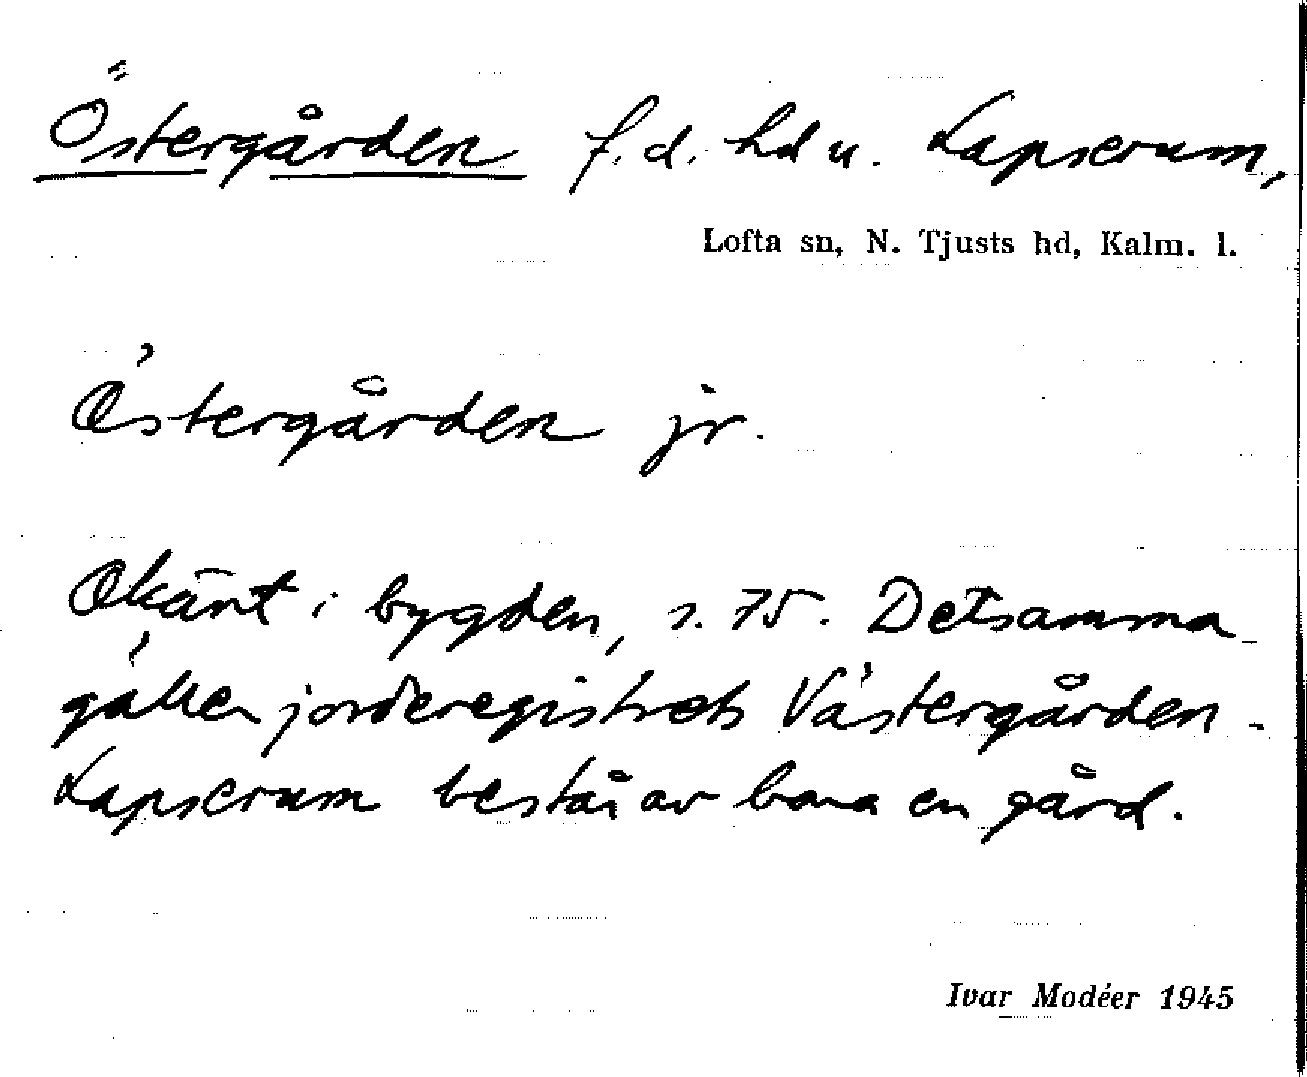 Östergården f.d. hd u. Lapserum,
Lofta sn, N. Tjusts hd, Kalm. l.
Östergården jr.
Okänt i bygden, s. 75. Detsamma
gäller jorderegistrets Västergården.
Lapserum består av bara en gård.
Ivar Modéer 1945